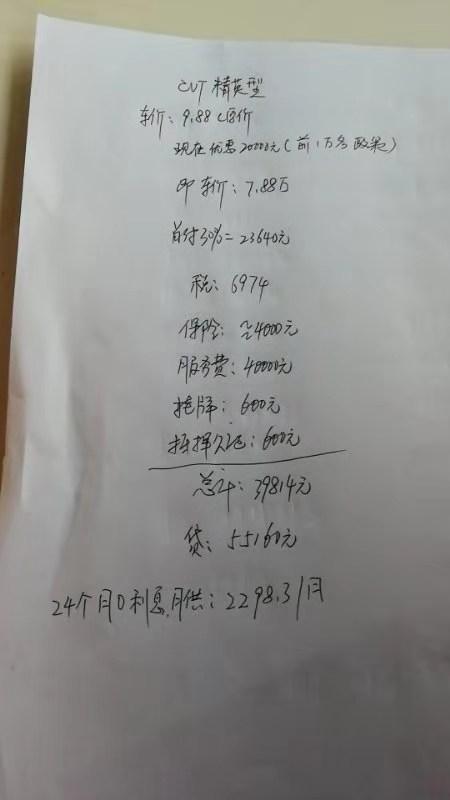 CVT 精英型
车价: 9.88 (原价)
现在优惠20000元(前1万名政策)
即车价: 7.88万
首付30%=23640元
税: 6974
保险: ≈4000元
服务费: 40000元
挂牌: 600元
抵押: 600元
总计: 39814元
贷: 55160元
24个月0利息月供: 2298.3/月